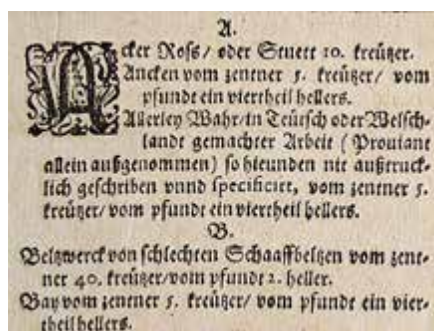 A.
Acker Roß/ oder Stuett 10. kreützer.
Ancken vom zentner 5. kreützer/ vom
pfundt ein viertheil hellers.
Allerley Wahr/ in Teütsch oder Welsch-
landt gemachter Arbeit ( Proviant
allein außgenommen ) so hieunden nit außtruck-
lich geschriben vnnd specificirt, vom zentner 5.
kreützer/ vom pfundt ein viertheil hellers.
B.
Beltzwerck von schlechten Schaaffbeltzen vom zent-
ner 40. kreützer/ vom pfundt 2. heller.
Bav vom zentner 5. kreützer/ vom pfundt ein vier-
theil hellers.